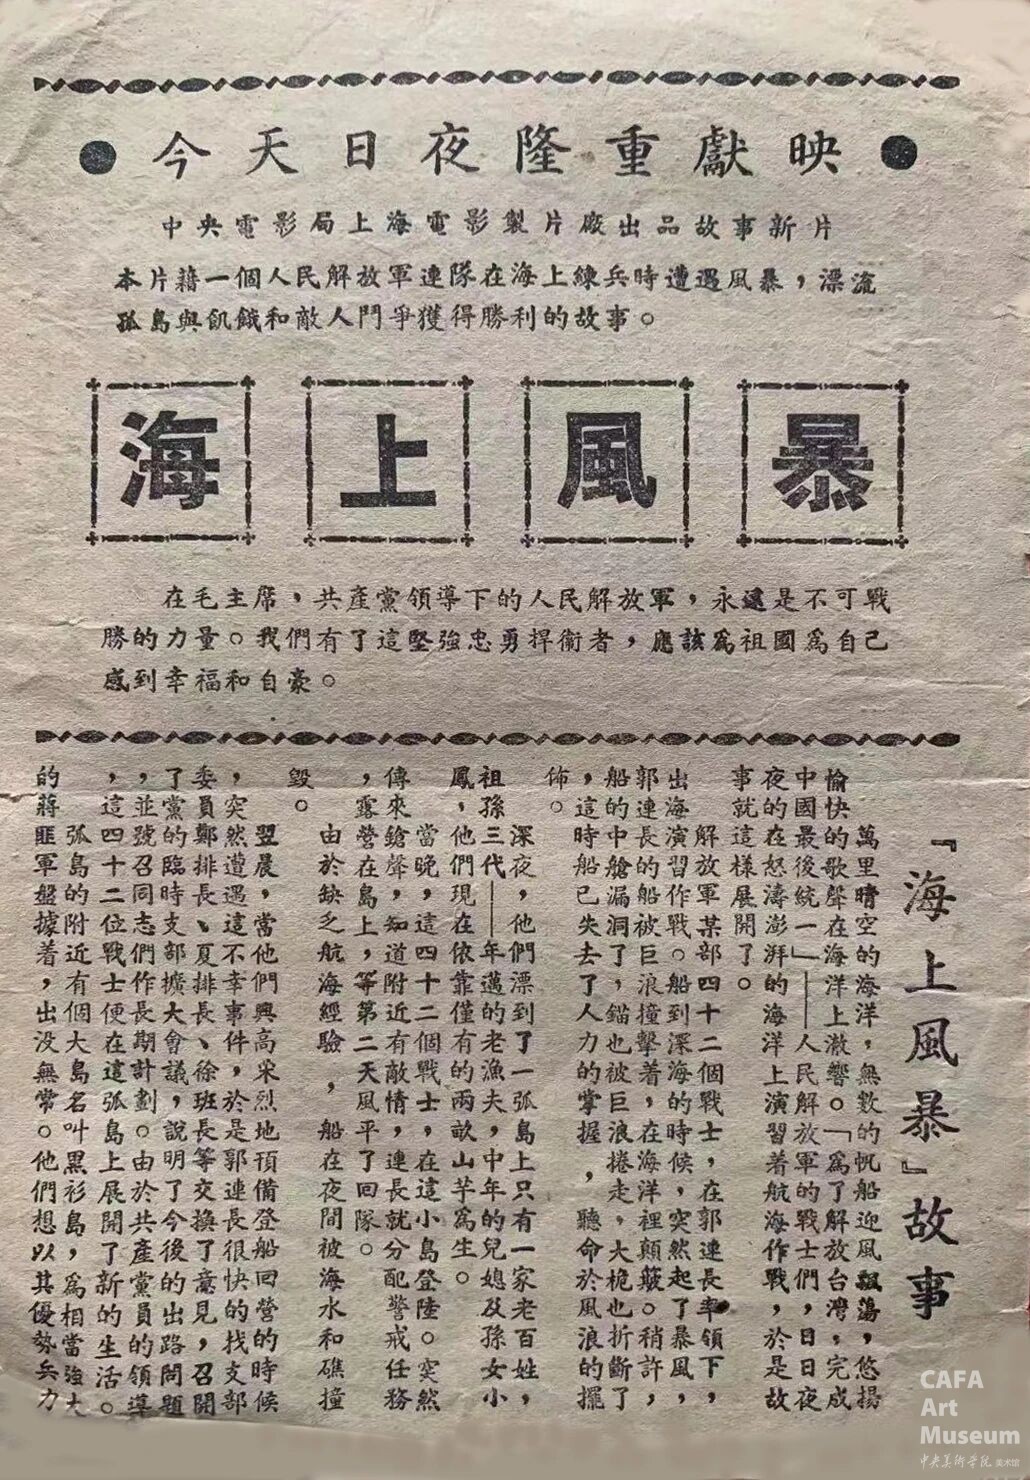 今天日夜隆重獻映
中央電影局上海電影製片廠出品故事新片
本片藉一個人民解放軍連隊在海上練兵時遭遇風暴，漂流
孤島與飢餓和敵人鬥爭獲得勝利的故事。
海上風暴
在毛主席，共產黨領導下的人民解放軍，永遠是不可戰
勝的力量。我們有了這堅強忠勇捍衞者，應該為祖國為自己
感到幸福和自豪。
『海上風暴』故事
萬里晴空的海洋，無數的帆船迎風飄蕩，悠揚
愉快的歌聲在海洋上激響。「為了解放台灣，完成
中國最後統一」——人民解放軍的戰士們，日日夜
夜的在怒濤澎湃的海洋上演習着航海作戰，於是故
事就這樣展開了。
解放軍某部四十二個戰士，在郭連長率領下，
出海演習作戰。船到深海的時候，突然起了暴風，
郭連長的船被巨浪撞擊着，在海洋裡顛簸。稍許，
船的中艙漏洞了，錨也被巨浪捲走，大桅也折斷了
，這時船已失去了人力的掌握，聽命於風浪的擺
佈。
深夜，他們漂到了一孤島上只有一家老百姓，
祖孫三代——年邁的老漁夫，中年的兒媳及孫女小
鳳，他們現在依靠僅有的兩畝山芋為生。
當晚，這四十二個戰士，在這小島登陸。突然
傳來鎗聲，知道附近有敵情，連長就分配警戒任務
，露營在島上，等第二天風平了回隊。
由於缺乏航海經驗，船在夜間被海水和礁撞
毀。
翌晨，當他們興高采烈地預備登船回營的時候
，突然遭遇這不幸事件，於是郭連長很快的找支部
委員鄭排長、夏排長、徐班長等交換了意見，召開
了黨的臨時支部擴大會議，說明了今後的出路問題
，並號召同志們作長期計劃。由於共產黨員的領導
，這四十二位戰士便在這孤島上展開了新的生活。
孤島的附近有個大島名叫黑衫島，為相當強大
的蔣匪軍盤據着，出没無常。他們想以其優勢兵力
CAFA
Art
Museum
中央美術学院 美术馆